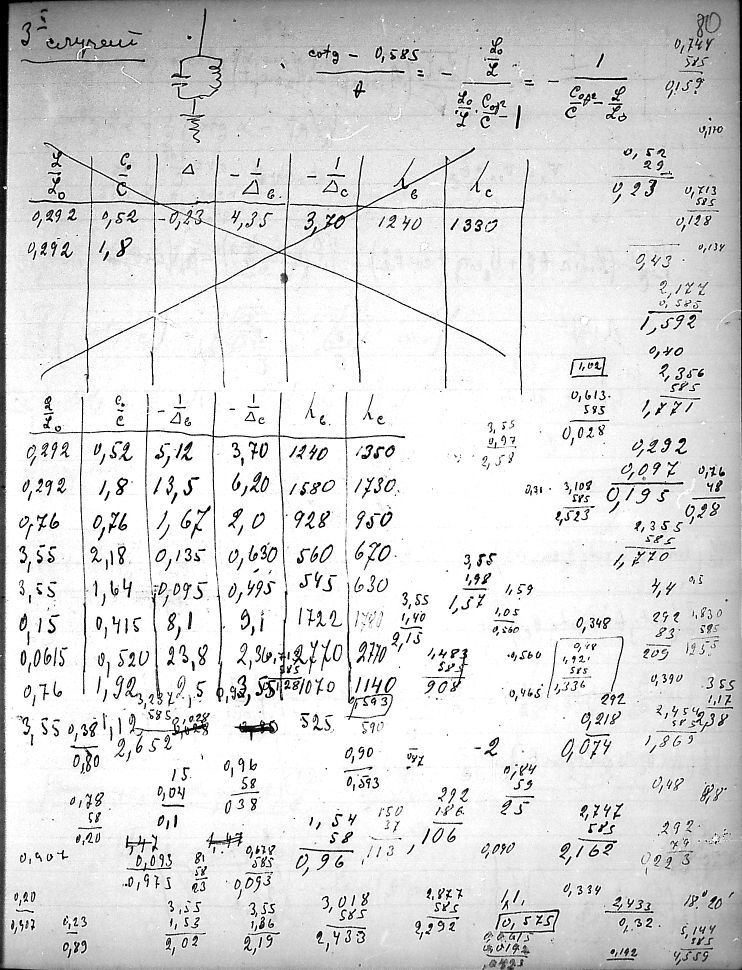 80
3й случай
cotg - 0,585 / A = - L₀/L / L₀/L · C₀p²/C - 1 = - 1 / C₀p²/C - L/L₀
0,744
585
0,159
0,52
29
0,23
0,713
585
0,128
0,134
C₀/C Δ - 1/Δв - 1/Δc λв λc
0,292 0,52 -0,23 4,35 3,70 1240 1330
0,292 1,8
0,43
2,177
0,585
1,592
0,40
2,356
585
1,771
1,02
0,613
585
0,028
L/L₀ C₀/C - 1/Δв - 1/Δc λв λc
0,292 0,52 5,12 3,70 1240 1350
0,292 1,8 13,5 6,20 1580 1730
0,76 0,76 1,67 2,0 928 950
3,55 2,18 0,135 0,630 560 670
3,55 1,64 0,095 0,495 545 630
0,15 0,415 8,1 9,1 1722
0,0615 0,520 23,8 2770 2770
0,76 1,92 1070 1140
3,55 1,12 525 590
3,55
0,97
2,58
0,292
0,097
0,195
0,76
48
0,28
0,31
3,108
585
2,523
2,355
585
1,770
3,55
1,98
1,57
1,59
4,4
3,55
1,40
2,15
1,05
0,560
0,348
292
83
209
1,830
585
1,483
585
908
0,560
0,48
1,921
585
1,336
0,465
0,390
3,55
1,17
2,38
292
0,218
0,074
2,454
585
1,869
3,237
585
2,652
0,38
0,80
0,593
0,90
0,593
-2
0,84
59
25
0,48
8,8
15
0,04
0,1
0,96
58
038
0,78
58
0,20
292
186
106
150
37
113
1,54
58
0,96
2,747
585
2,162
292
79
0,223
0,407
1,47
1,47
0,093
0,975
81
58
23
0,678
585
0,093
0,090
0,334
0,20
0,407
0,23
0,89
3,55
1,53
2,02
3,55
1,36
2,19
3,018
585
2,433
2,877
585
2,292
1,1
0,575
2,433
0,32
0,192
18° 20'
5,144
585
4,559